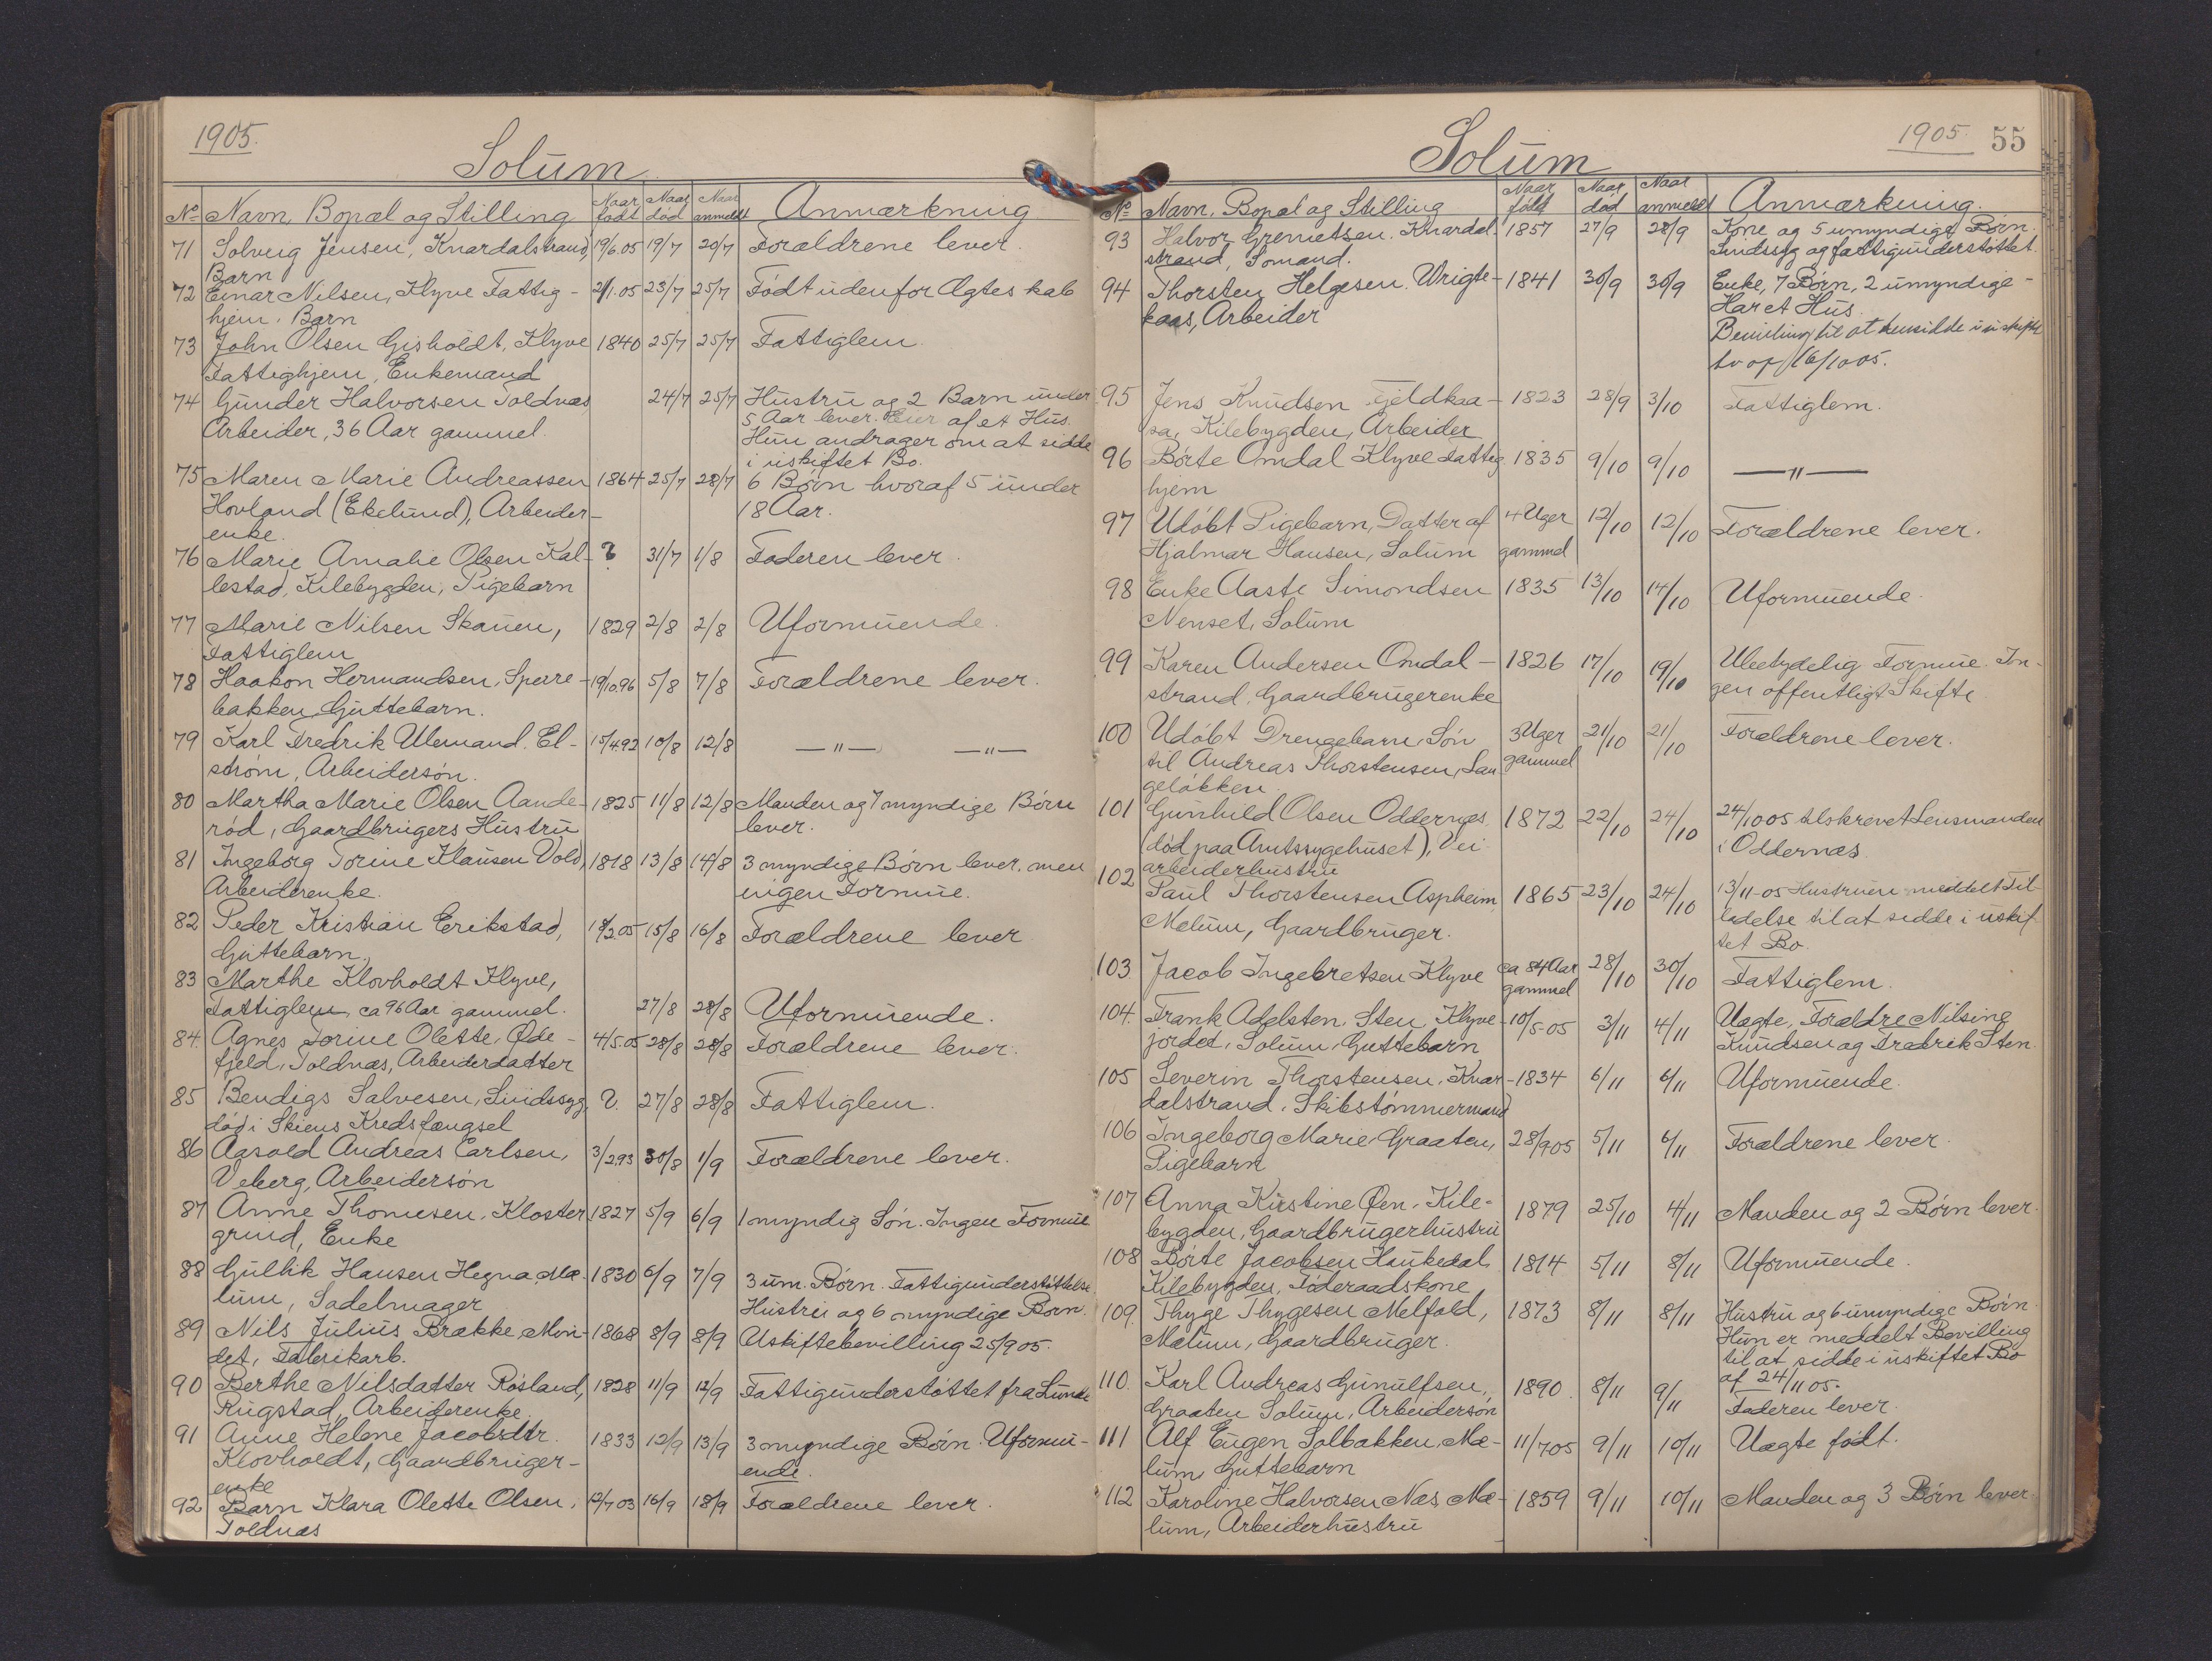 1905.
Solum
No Navn, Bopæl og Stilling Naar født Naar død Naar anmeldt Anmærkning
71 Solveig Jensen, Knardalstrand, 19/6.05 19/7 20/7 Forældrene lever.
Barn
72 Einar Nilsen, Klyve Fattig- 2/1.05 23/7 25/7 Født udenfor Ægteskab
hjem. Barn
73 John Olsen Gisholdt, Klyve 1840 25/7 25/7 Fattiglem
Fattighjem, Enkemand
74 Gunder Halvorsen Toldnæs 24/7 25/7 Hustru og 2 Barn under
Arbeider, 36 Aar gammel. 5 Aar lever. Eier af et Hus.
Hun andrager om at sidde
i uskiftet Bo.
75 Maren Marie Andreassen 1864 25/7 28/7 6 Børn hvoraf 5 under
Hovland (Ekelund), Arbeider- 18 Aar.
enke.
76 Marie Amalie Olsen Kal- ? 31/7 1/8 Faderen lever.
lestad, Kilebygden, Pigebarn
77 Marie Nilsen Skauen, 1829 2/8 2/8 Uformuende.
Fattiglem
78 Haakon Hermandsen, Sperre- 19/10.96 5/8 7/8 Forældrene lever.
bakken, Guttebarn.
79 Karl Fredrik Ulemand. El- 15/4.92 10/8 12/8 —"— —"—
strøm, Arbeidersøn.
80 Martha Marie Olsen Aande- 1825 11/8 12/8 Manden og 7 myndige Børn
rød, Gaardbrugers Hustru lever.
81 Ingeborg Torine Klausen Vold, 1818 13/8 14/8 3 myndige Børn lever, men
Arbeiderenke. ingen Formue.
82 Peder Kristian Erikstad, 18/2.05 15/8 16/8 Forældrene lever
Guttebarn.
83 Marthe Klovholdt Klyve,
Fattiglem, ca 96 Aar gammel. 27/8 28/8 Uformuende.
84. Agnes Torine Olette, Øde- 4/5.05 28/8 28/8 Forældrene lever.
fjeld, Toldnæs, Arbeiderdatter
85 Bendigs Salvesen, Sindssyg, ?. 27/8 28/8 Fattiglem.
død i Skiens Kredsfængsel
86 Aasold Andreas Carlsen, 3/2.93 30/8 1/9 Forældrene lever.
Veberg, Arbeidersøn
87 Anne Thomesen, Kloster 1827 5/9 6/9 1 myndig Søn. Ingen Formue
grund, Enke
88 Gullik Hansen Hegna, Mæ- 1830 6/9 7/9 3 um. Børn. Fattigunderstøttelse
lum, Sadelmager Hustru og 6 myndige Børn.
89 Nils Julius Brække, Mon- 1868 8/9 8/9 Uskiftebevilling 25/9 05.
det, Fabrikarb.
90 Berthe Nilsdatter Røsland, 1828 11/9 12/9 Fattigunderstøttet fra Lunde
Rugstad, Arbeiderenke.
91 Anne Helene Jacobsdtr. 1833 12/9 13/9 3 myndige Børn. Uformu-
Klovholdt, Gaardbruger- ende.
enke
92 Barn Klara Olette Olsen, 12/7 03 16/9 18/9 Forældrene lever.
Toldnæs
1905. 55
Solum
No Navn, Bopæl og Stilling Naar født Naar død Naar anmeldt Anmærkning.
93 Halvor Gremetsen. Knardal- 1857 27/9 28/9 Kone og 5 umyndige Børn.
strand, Sømand. Sindssyg og fattigunderstøttet.
94 Thorsten Helgesen. Vrigte- 1841 30/9 30/9 Enke, 7 Børn, 2 umyndige-
kaas, Arbeider Har et Hus.
Bevilling til at hensidde i uskifte
Bo af 16/10 05.
95 Jens Knudsen Fjeldkaa- 1823 28/9 3/10 Fattiglem.
sa, Kilebygden, Arbeider
96 Børte Omdal Klyve Fattig 1835 9/10 9/10 —"—
hjem
97 Udøbt Pigebarn, Datter af 4 Uger 12/10 12/10 Forældrene lever.
Hjalmar Hansen, Solum gammel
98 Enke Aaste Simondsen 1835 13/10 14/10 Uformuende.
Nenset, Solum
99 Karen Andersen Omdal- 1826 17/10 19/10 Ubetydelig Formue. In-
strand, Gaardbrugerenke gen offentligt Skifte
100 Udøbt Drengebarn, Søn 3 Uger 21/10 21/10 Forældrene lever.
til Andreas Thorstensen, Lan gammel
geløkken.
101 Gunhild Olsen Oddernæs 1872 22/10 24/10 24/10 05 tilskrevet Lensmanden
(død paa Amtssygehuset), Vei i Oddernæs
arbeiderhustru
102 Paul Thorstensen Aspheim 1865 23/10 24/10 13/11-05 Hustruen meddelt Til
Melum, Gaardbruger. ladelse til at sidde i uskif-
tet Bo.
103. Jacob Ingebretsen Klyve ca 84 Aar gammel 28/10 30/10 Fattiglem.
104. Frank Adelsten, Sten, Klyve- 10/5-05 3/11 4/11 Uægte, Forældre Nilsine
jordet, Solum, Guttebarn Knudsen og Fredrik Sten.
105 Severin Thorstensen. Knar- 1834 6/11 6/11 Uformuende.
dalstrand. Skibstømmermand
106 Ingeborg Marie Graaten, 28/9 05 5/11 6/11 Forældrene lever.
Pigebarn
107 Anna Kirstine Øen, Kile- 1879 25/10 4/11 Manden og 2 Børn lever.
bygden, Gaardbrugerhustru
108 Børte Jacobsen Haukedal 1814 5/11 8/11 Uformuende.
Kilebygden, Føderaadskone
109. Thyge Thygesen Melfald, 1873 8/11 8/11 Hustru og 6 umyndige Børn.
Mælum, Gaardbruger. Hun er meddelt Bevilling
til at sidde i uskiftet Bo
af 24/11 05.
110. Karl Andreas Gunulfsen, 1890. 8/11 9/11 Faderen lever.
Graaten Solum, Arbeidersøn
111 Alf Eugen Solbakken, Mæ- 11/7 05 9/11 10/11 Uægte født.
lum, Guttebarn
112 Karoline Halvorsen Næs, Mæ- 1859 9/11 10/11 Manden og 3 Børn lever.
lum, Arbeiderhustru